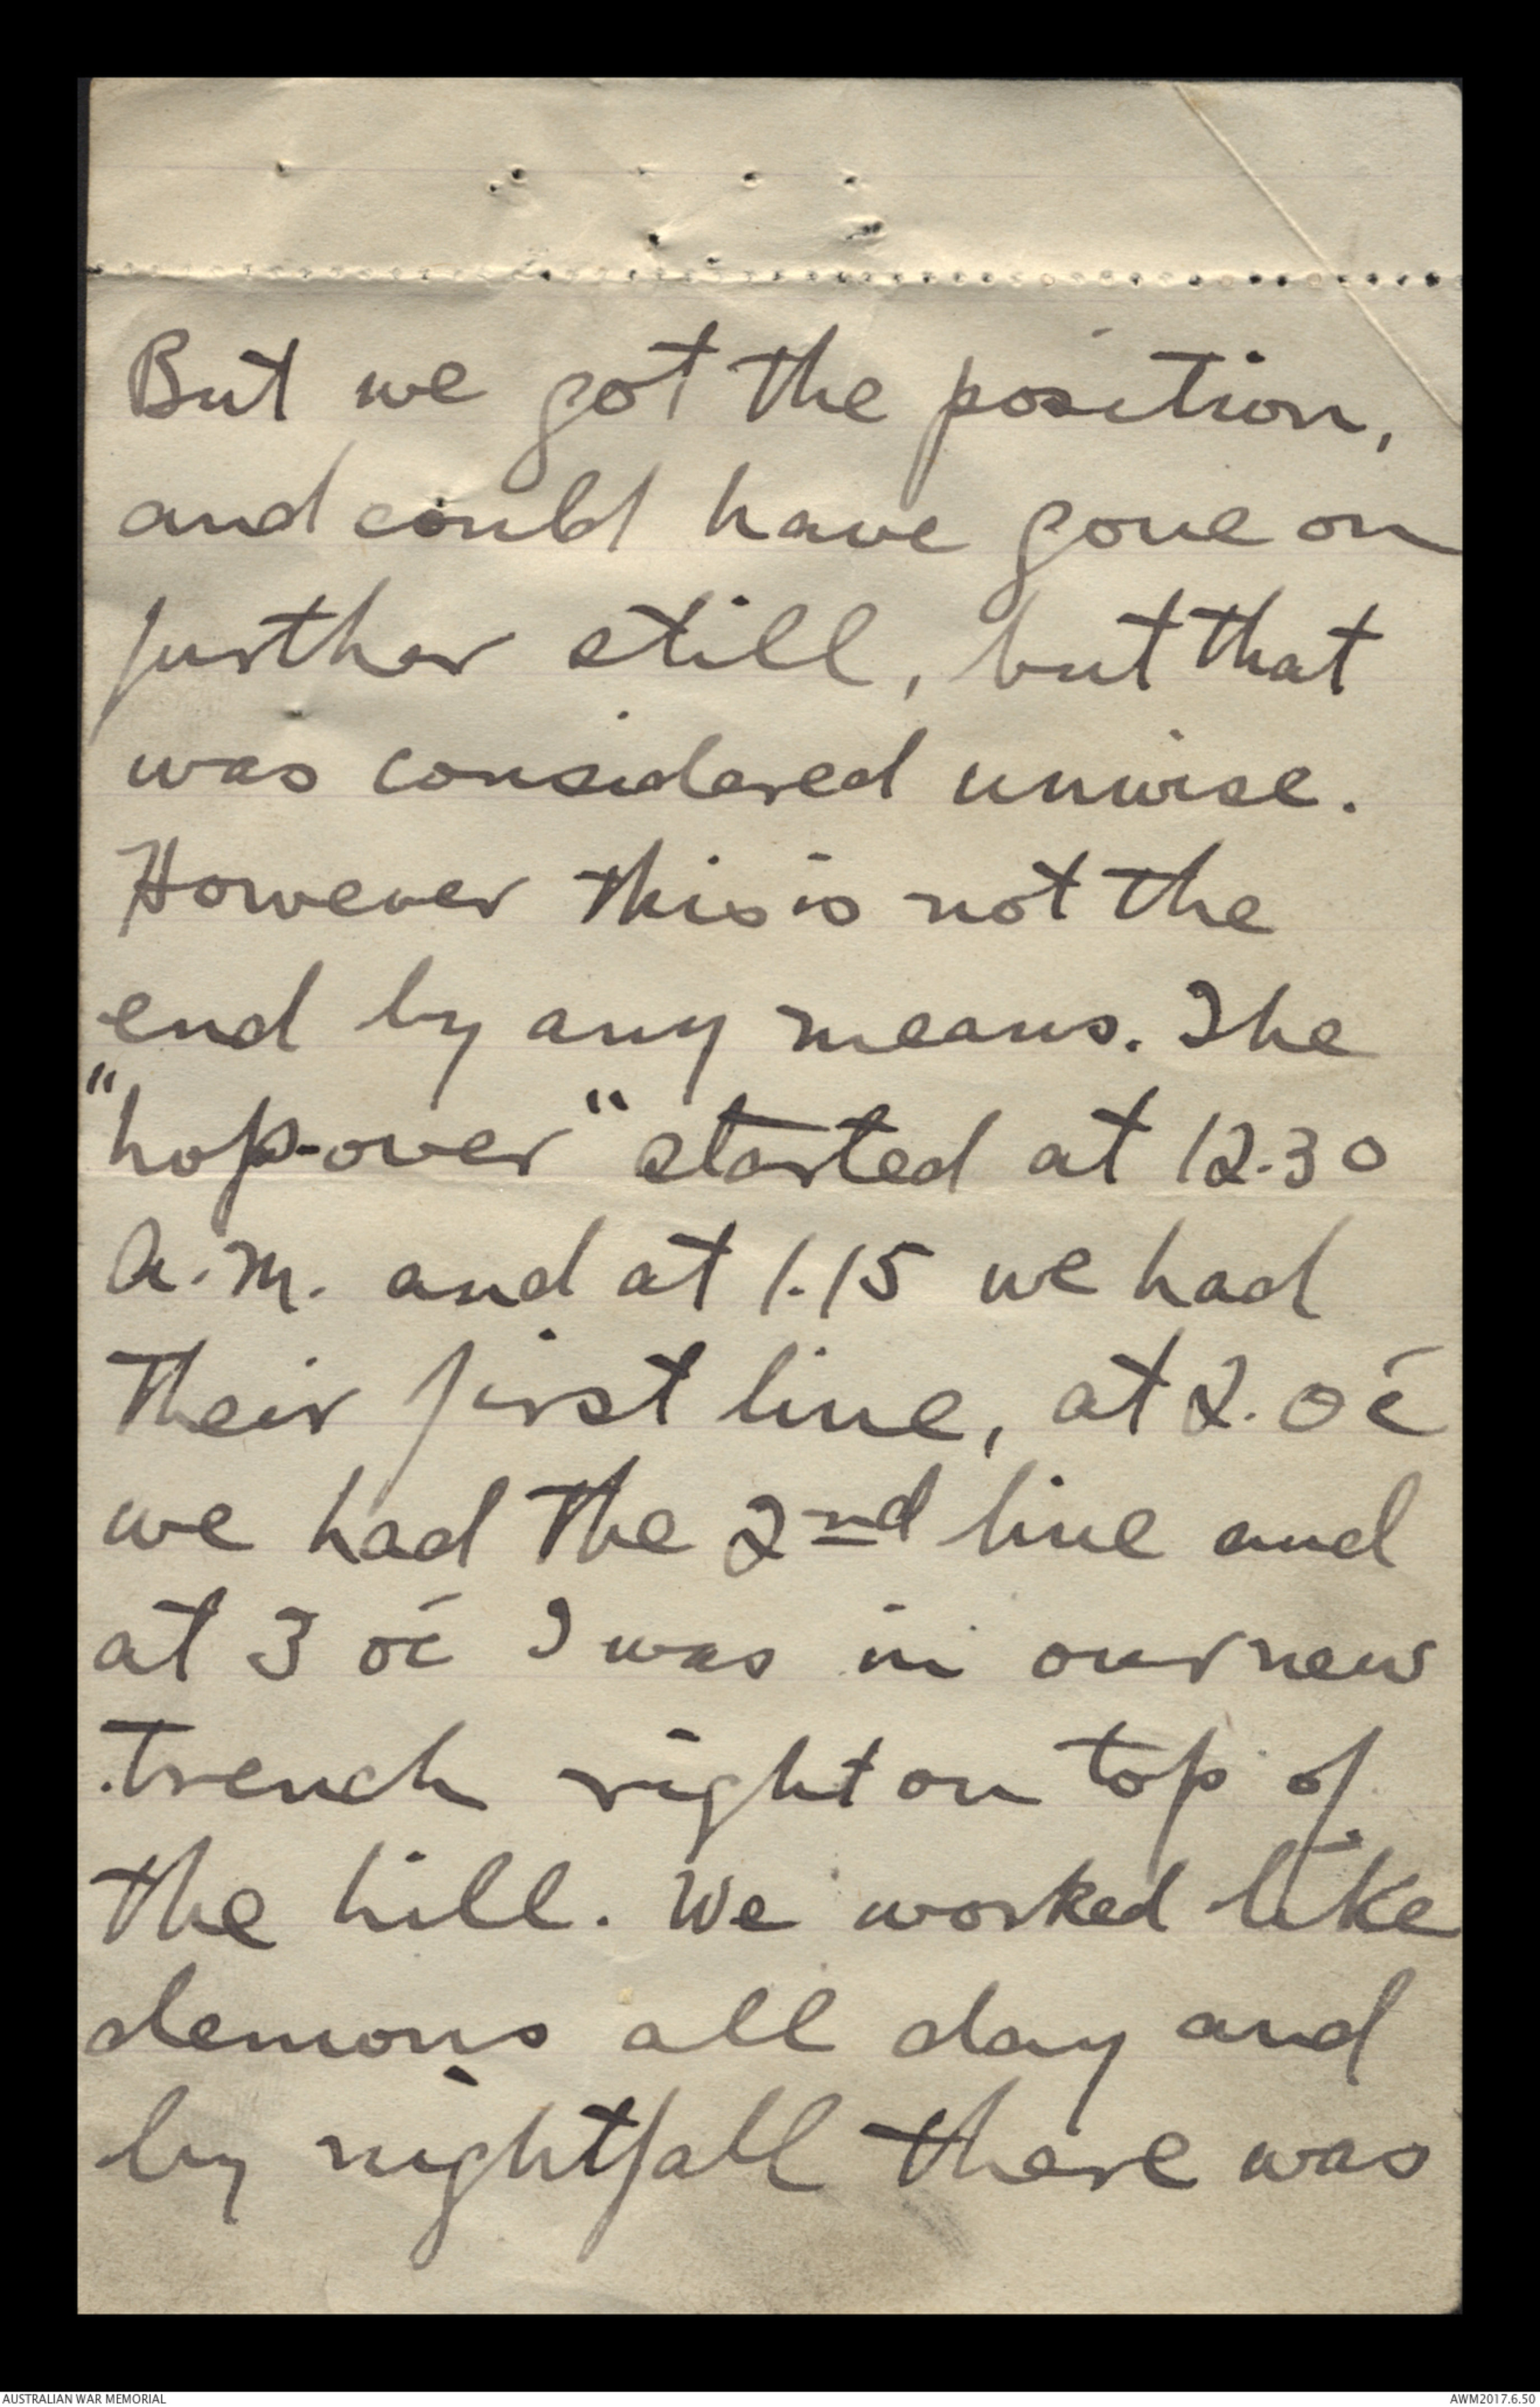 But we got the position,
and could have gone on
further still, but that
was considered unwise.
However this is not the
end by any means. The
"hop-over" started at 12.30
A.M. and at 1.15 we had
their first line, at 2. oć
we had the 2nd line and
at 3 oć I was in our new
trench right on top of
the hill. We worked like
demons all day and
by nightfall there was
AUSTRALIAN WAR MEMORIAL
AWM2017.6.50